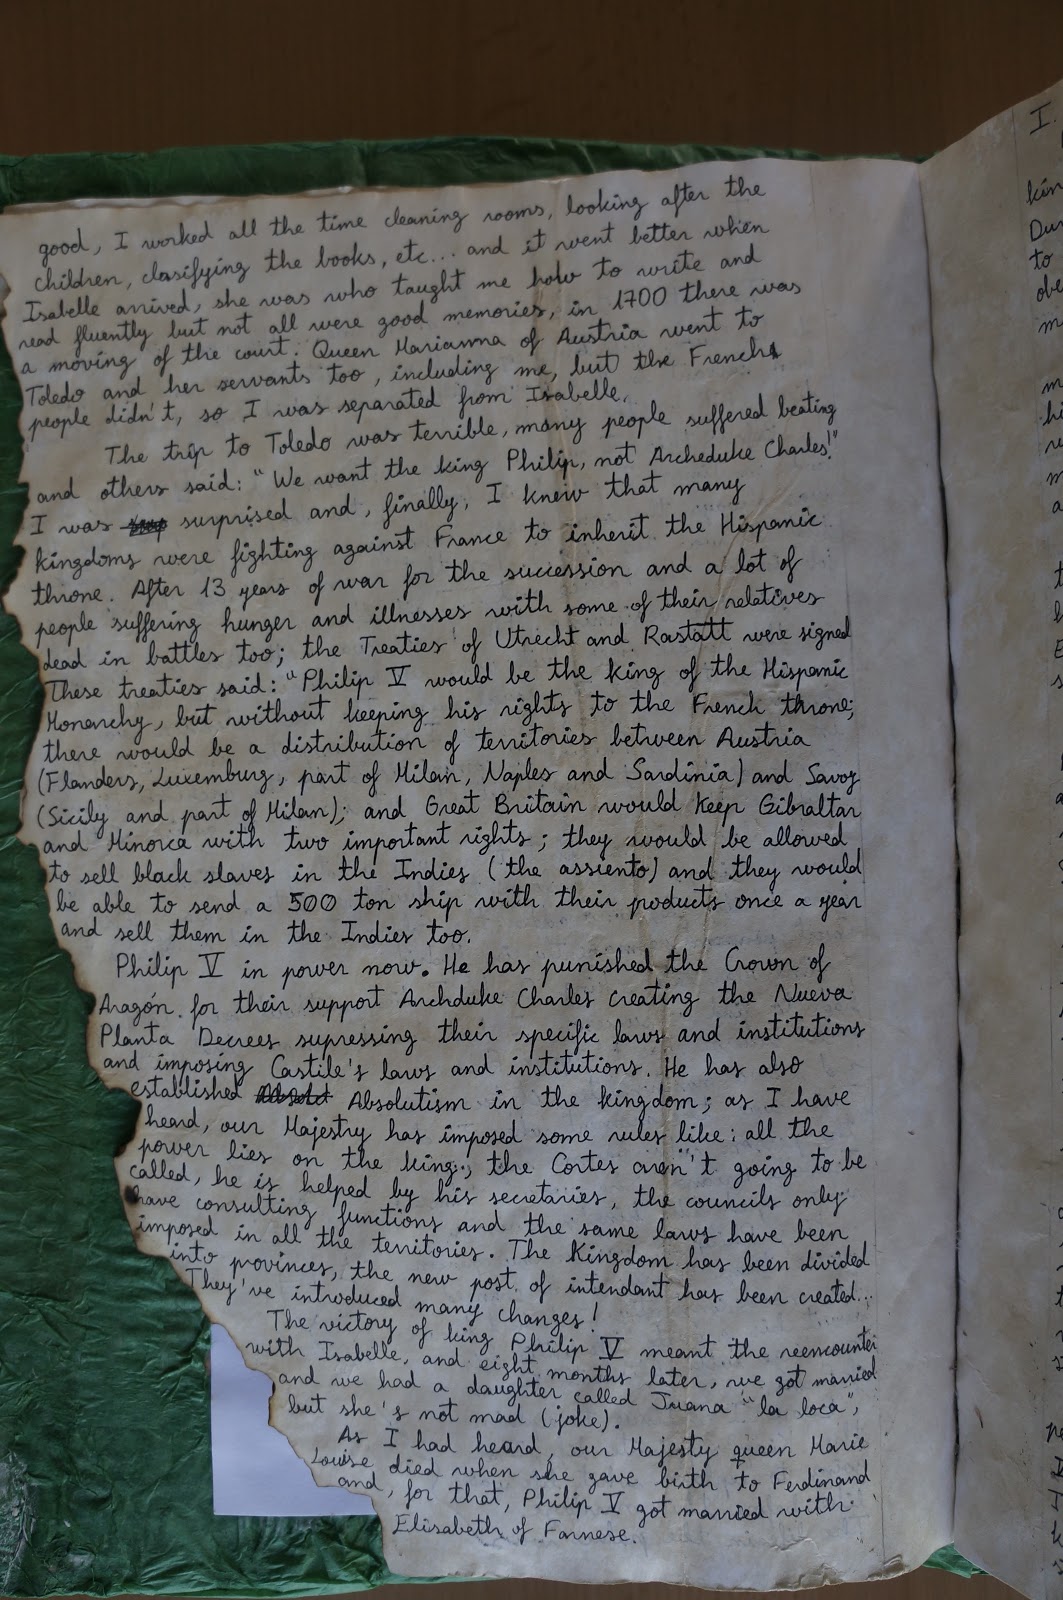 good, I worked all the time cleaning rooms, looking after the
children, clasifying the books, etc... and it went better when
Isabelle arrived, she was who taught me how to write and
read fluently but not all were good memories, in 1700 there was
a moving of the court. Queen Marianna of Austria went to
Toledo and her servants too, including me, but the French
people didn't, so I was separated from Isabelle.
The trip to Toledo was terrible, many people suffered beating
and others said: "We want the king Philip, not Archeduke Charles!"
I was surprised and, finally, I knew that many
kingdoms were fighting against France to inherit the Hispanic
throne. After 13 years of war for the succession and a lot of
people suffering hunger and illnesses with some of their relatives
dead in battles too; the Treaties of Utrecht and Rastatt were signed
These treaties said: "Philip V would be the king of the Hispanic
Monarchy, but without keeping his rights to the French throne;
there would be a distribution of territories between Austria
(Flanders, Luxemburg, part of Milan, Naples and Sardinia) and Savoy
(Sicily and part of Milan); and Great Britain would keep Gibraltar
and Minorca with two important rights; they would be allowed
to sell black slaves in the Indies (the assiento) and they would
be able to send a 500 ton ship with their products once a year
and sell them in the Indies too.
Philip V in power now. He has punished the Crown of
Aragón for their support Archduke Charles creating the Nueva
Planta Decrees supressing their specific laws and institutions
and imposing Castile's laws and institutions. He has also
established Absolutism in the kingdom; as I have
heard, our Majestry has imposed some rules like: all the
power lies on the king; the Cortes aren't going to be
called, he is helped by his secretaries, the councils only
have consulting functions and the same laws have been
imposed in all the territories. The Kingdom has been divided
into provinces, the new post of intendant has been created...
They've introduced many changes!
The victory of king Philip V meant the reencounter
with Isabelle, and eight months later, we got married
and we had a daughter called Juana "la loca",
but she's not mad (joke).
As I had heard, our Majesty queen Marie
Louise died when she gave birth to Ferdinand
and, for that, Philip V got married with
Elisabeth of Farnese.
I.